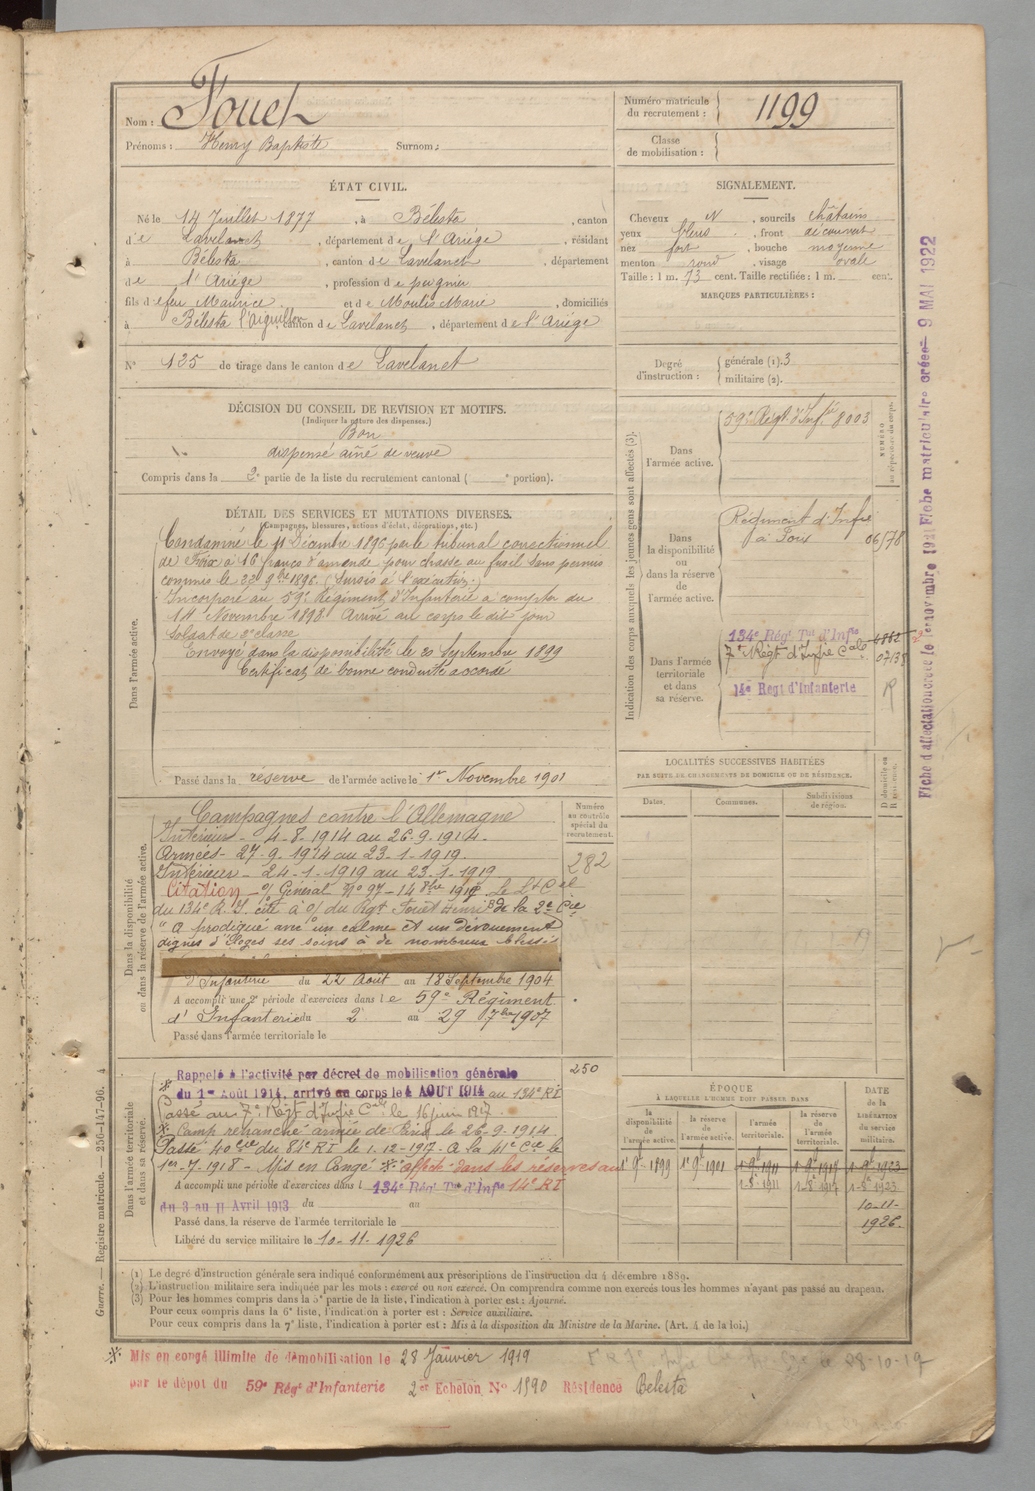 Nom : Fouet
Prénoms : Henry Baptiste Surnom :
Numéro matricule du recrutement : 1199
Classe de mobilisation :
ÉTAT CIVIL.
Né le 14 Juillet 1877, à Bélesta, canton
de Lavelanet, département de l'Ariége, résidant
à Bélesta, canton de Lavelanet, département
de l'Ariége, profession de peignier
fils de feu Maurice et de Moulis Marie, domiciliés
à Bélesta l'Aiguillon, canton de Lavelanet, département de l'Ariége
N° 125 de tirage dans le canton de Lavelanet
SIGNALEMENT.
Cheveux N, sourcils châtains
yeux bleus, front découvert
nez fort, bouche moyenne
menton rond, visage ovale
Taille : 1 m. 73 cent. Taille rectifiée : 1 m. cent.
MARQUES PARTICULIÈRES :
Degré d'instruction : générale (1). 3
militaire (2).
DÉCISION DU CONSEIL DE REVISION ET MOTIFS.
(Indiquer la nature des dispenses.)
Bon
dispensé aîné de veuve
Compris dans la 2e partie de la liste du recrutement cantonal ( e portion).
DÉTAIL DES SERVICES ET MUTATIONS DIVERSES.
(Campagnes, blessures, actions d'éclat, décorations, etc.)
Dans l'armée active.
Condamné le 11 Décembre 1896 par le tribunal correctionnel
de Foix à 16 francs d'amende pour chasse au fusil sans permis
commis le 22 9bre 1896. (Sursis à l'exécution.)
Incorporé au 59e Régiment d'Infanterie à compter du
14 Novembre 1898. Arrivé au corps le dit jour
Soldat de 2e classe
Envoyé dans la disponibilité le 20 Septembre 1899
Certificat de bonne conduite accordé
Passé dans la réserve de l'armée active le 1er Novembre 1901
Indication des corps auxquels les jeunes gens sont affectés (3).
Dans l'armée active.
59e Régt d'Infie 8003
NUMÉRO
Dans la disponibilité ou dans la réserve de l'armée active.
Régiment d'Infie
à Foix 06578
Dans l'armée territoriale et dans sa réserve.
134e Régt Tal d'Infie
7e Régt d'Infie Cale 07138
14e Régt d'Infanterie
LOCALITÉS SUCCESSIVES HABITÉES
PAR SUITE DE CHANGEMENTS DE DOMICILE OU DE RÉSIDENCE.
Dates. Communes. Subdivisions de région. D domicile ou R résidence.
Fiche d'affectation créée le 1er novembre 1921 Fiche matriculaire créée 9 MAI 1922
Dans la disponibilité ou dans la réserve de l'armée active.
Numéro au contrôle spécial du recrutement.
282
Campagnes contre l'Allemagne
Intérieur - 4-8-1914 au 26-9-1914.
Armées - 27-9-1914 au 23-1-1919.
Intérieur - 24-1-1919 au 23-1-1919
Citation - O/ Général No 97 - Le Lt Cel
du 134e R.I. cite à o/ du Rgt Fouet Henri de la 2e Cie
"a prodigué avec un calme et un dévouement
dignes d'éloges ses soins à de nombreux blessés
d'Infanterie du 22 Août au 18 Septembre 1904
A accompli une 2e période d'exercices dans le 59e Régiment
d'Infanterie du 2 au 29 7bre 1907
Passé dans l'armée territoriale le
Dans l'armée territoriale et dans sa réserve.
250
Rappelé à l'activité par décret de mobilisation générale
du 1er Août 1914, arrivé au corps le 4 AOUT 1914 au 134e RI
Passé au 7e Régt d'Infie Cale le 16 juin 1917.
Passé 40e Cie du 84e RI le 1-12-1917 - A la 41e Cie le
1er-7-1918 - Mis en Congé affecté dans les réserves au
A accompli une période d'exercices dans l 134e Régt Tal d'Infie 14e RI
du 3 au 11 Avril 1913 du au
Passé dans la réserve de l'armée territoriale le
Libéré du service militaire le 10-11-1926
ÉPOQUE
À LAQUELLE L'HOMME DOIT PASSER DANS
la disponibilité de l'armée active. la réserve de l'armée active. l'armée territoriale. la réserve de l'armée territoriale.
DATE de la LIBÉRATION du service militaire.
1er 9bre 1899 1er 9bre 1901 1er 9bre 1911 1er 9bre 1917 1er 9bre 1923
1-8bre 1911 1-8bre 1917 1-8bre 1923
10-11-1926.
(1) Le degré d'instruction générale sera indiqué conformément aux prescriptions de l'instruction du 4 décembre 1889.
(2) L'instruction militaire sera indiquée par les mots : exercé ou non exercé. On comprendra comme non exercés tous les hommes n'ayant pas passé au drapeau.
(3) Pour les hommes compris dans la 5e partie de la liste, l'indication à porter est : Ajourné.
Pour ceux compris dans la 6e liste, l'indication à porter est : Service auxiliaire.
Pour ceux compris dans la 7e liste, l'indication à porter est : Mis à la disposition du Ministre de la Marine. (Art. 4 de la loi.)
Guerre. — Registre matricule. — 256-147-96. 4
Mis en congé illimité de démobilisation le 28 Janvier 1919
par le dépot du 59e Régt d'Infanterie 2er Echelon, No 1590 Résidence Belesta